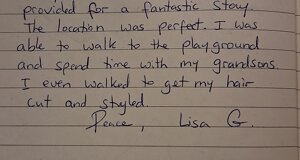 provided for a fantastic stay.
The location was perfect. I was
able to walk to the playground
and spend time with my grandsons.
I even walked to get my hair
cut and styled.
Peace, Lisa G.